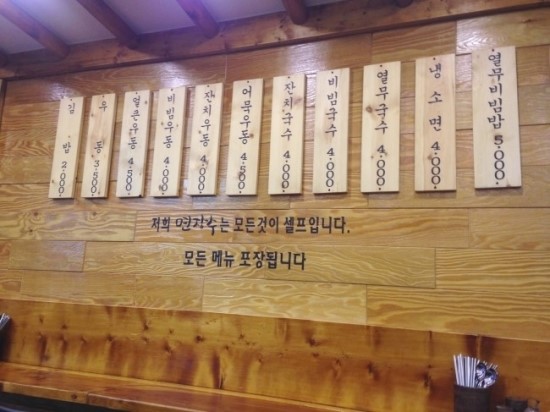 김밥 2.000.
우동 3.500
얼큰우동 4.500
비빔우동 4.000
잔치우동 4.000
어묵우동 4.500
잔치국수 4.000
비빔국수 4.000
열무국수 4.000
냉소면 4.000
열무비빔밥 5.000.
저희 면장수는 모든것이 셀프입니다.
모든 메뉴 포장됩니다